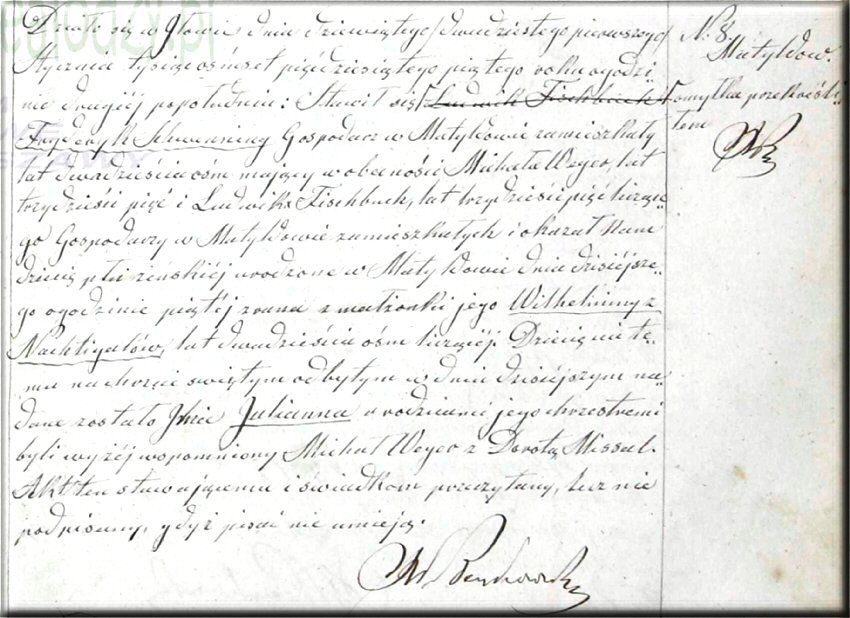 Działo się w Iłowie dnia dziewiątego/dwudziestego pierwszego
Stycznia tysiąc ośmset pięćdziesiątego piątego roku o godzi
nie drugiéj popołudniu: Stawił się Ludwik Fischbuch
Fryderyk Schwenning Gospodarz w Matyldowie zamieszkały
lat dwadzieścia ośm mający w obecności Michała Weyer, lat
trzydzieści pięć i Ludwika Fischbuch, lat trzydzieści pięć liczące
go Gospodarzy w Matyldowie zamieszkałych i okazał Nam
dziecię płci żeńskiéj urodzone w Matyldowie dnia dzisiejsze
go o godzinie piątéj zrana z małżonki jego Wilhelminy z
Nachtigalów, lat dwadzieścia ośm liczącéj. Dziecięciu te
mu na chrzcie świętym odbytym w dniu dzisiéjszym na
dane zostało Imie Julianna a rodzicami jego chrzestnemi
byli wyżéj wspomniony Michał Weyer z Dorotą Missal.
Akt ten stawającemu i świadkom przeczytany, lecz nie
podpisany, gdyż pisać nie umieją.
N. 8.
Matyldow.
omyłka przekreśli
łem